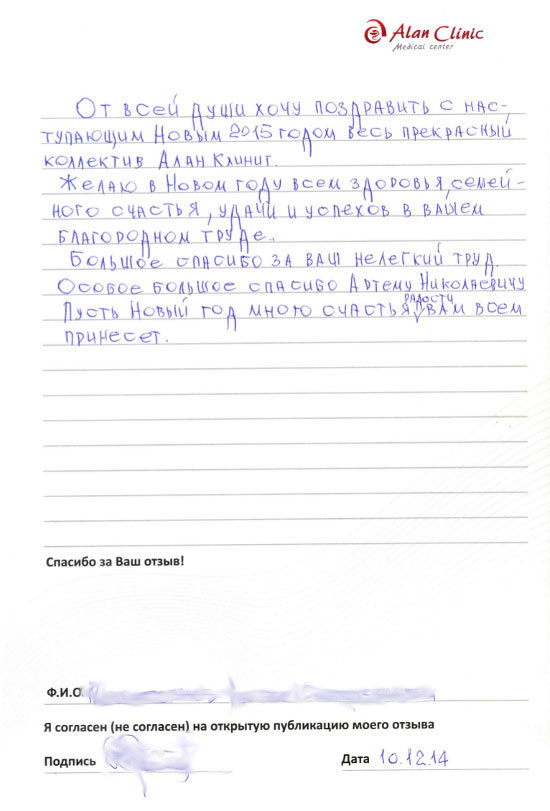 Alan Clinic
Medical center
От всей души хочу поздравить с нас-
тупающим Новым 2015 годом весь прекрасный
коллектив Алан Клиниг.
Желаю в Новом году всем здоровья, семей-
ного счастья, удачи и успехов в вашем
благородном труде..
Большое спасибо за ваш нелегкий труд
Особое большое спасибо Артему Николаевичу
Пусть Новый год много счастья, радости вам всем
принесет.
Спасибо за Ваш отзыв!
Ф.И.О
Я согласен (не согласен) на открытую публикацию моего отзыва
Подпись Дата 10.12.14